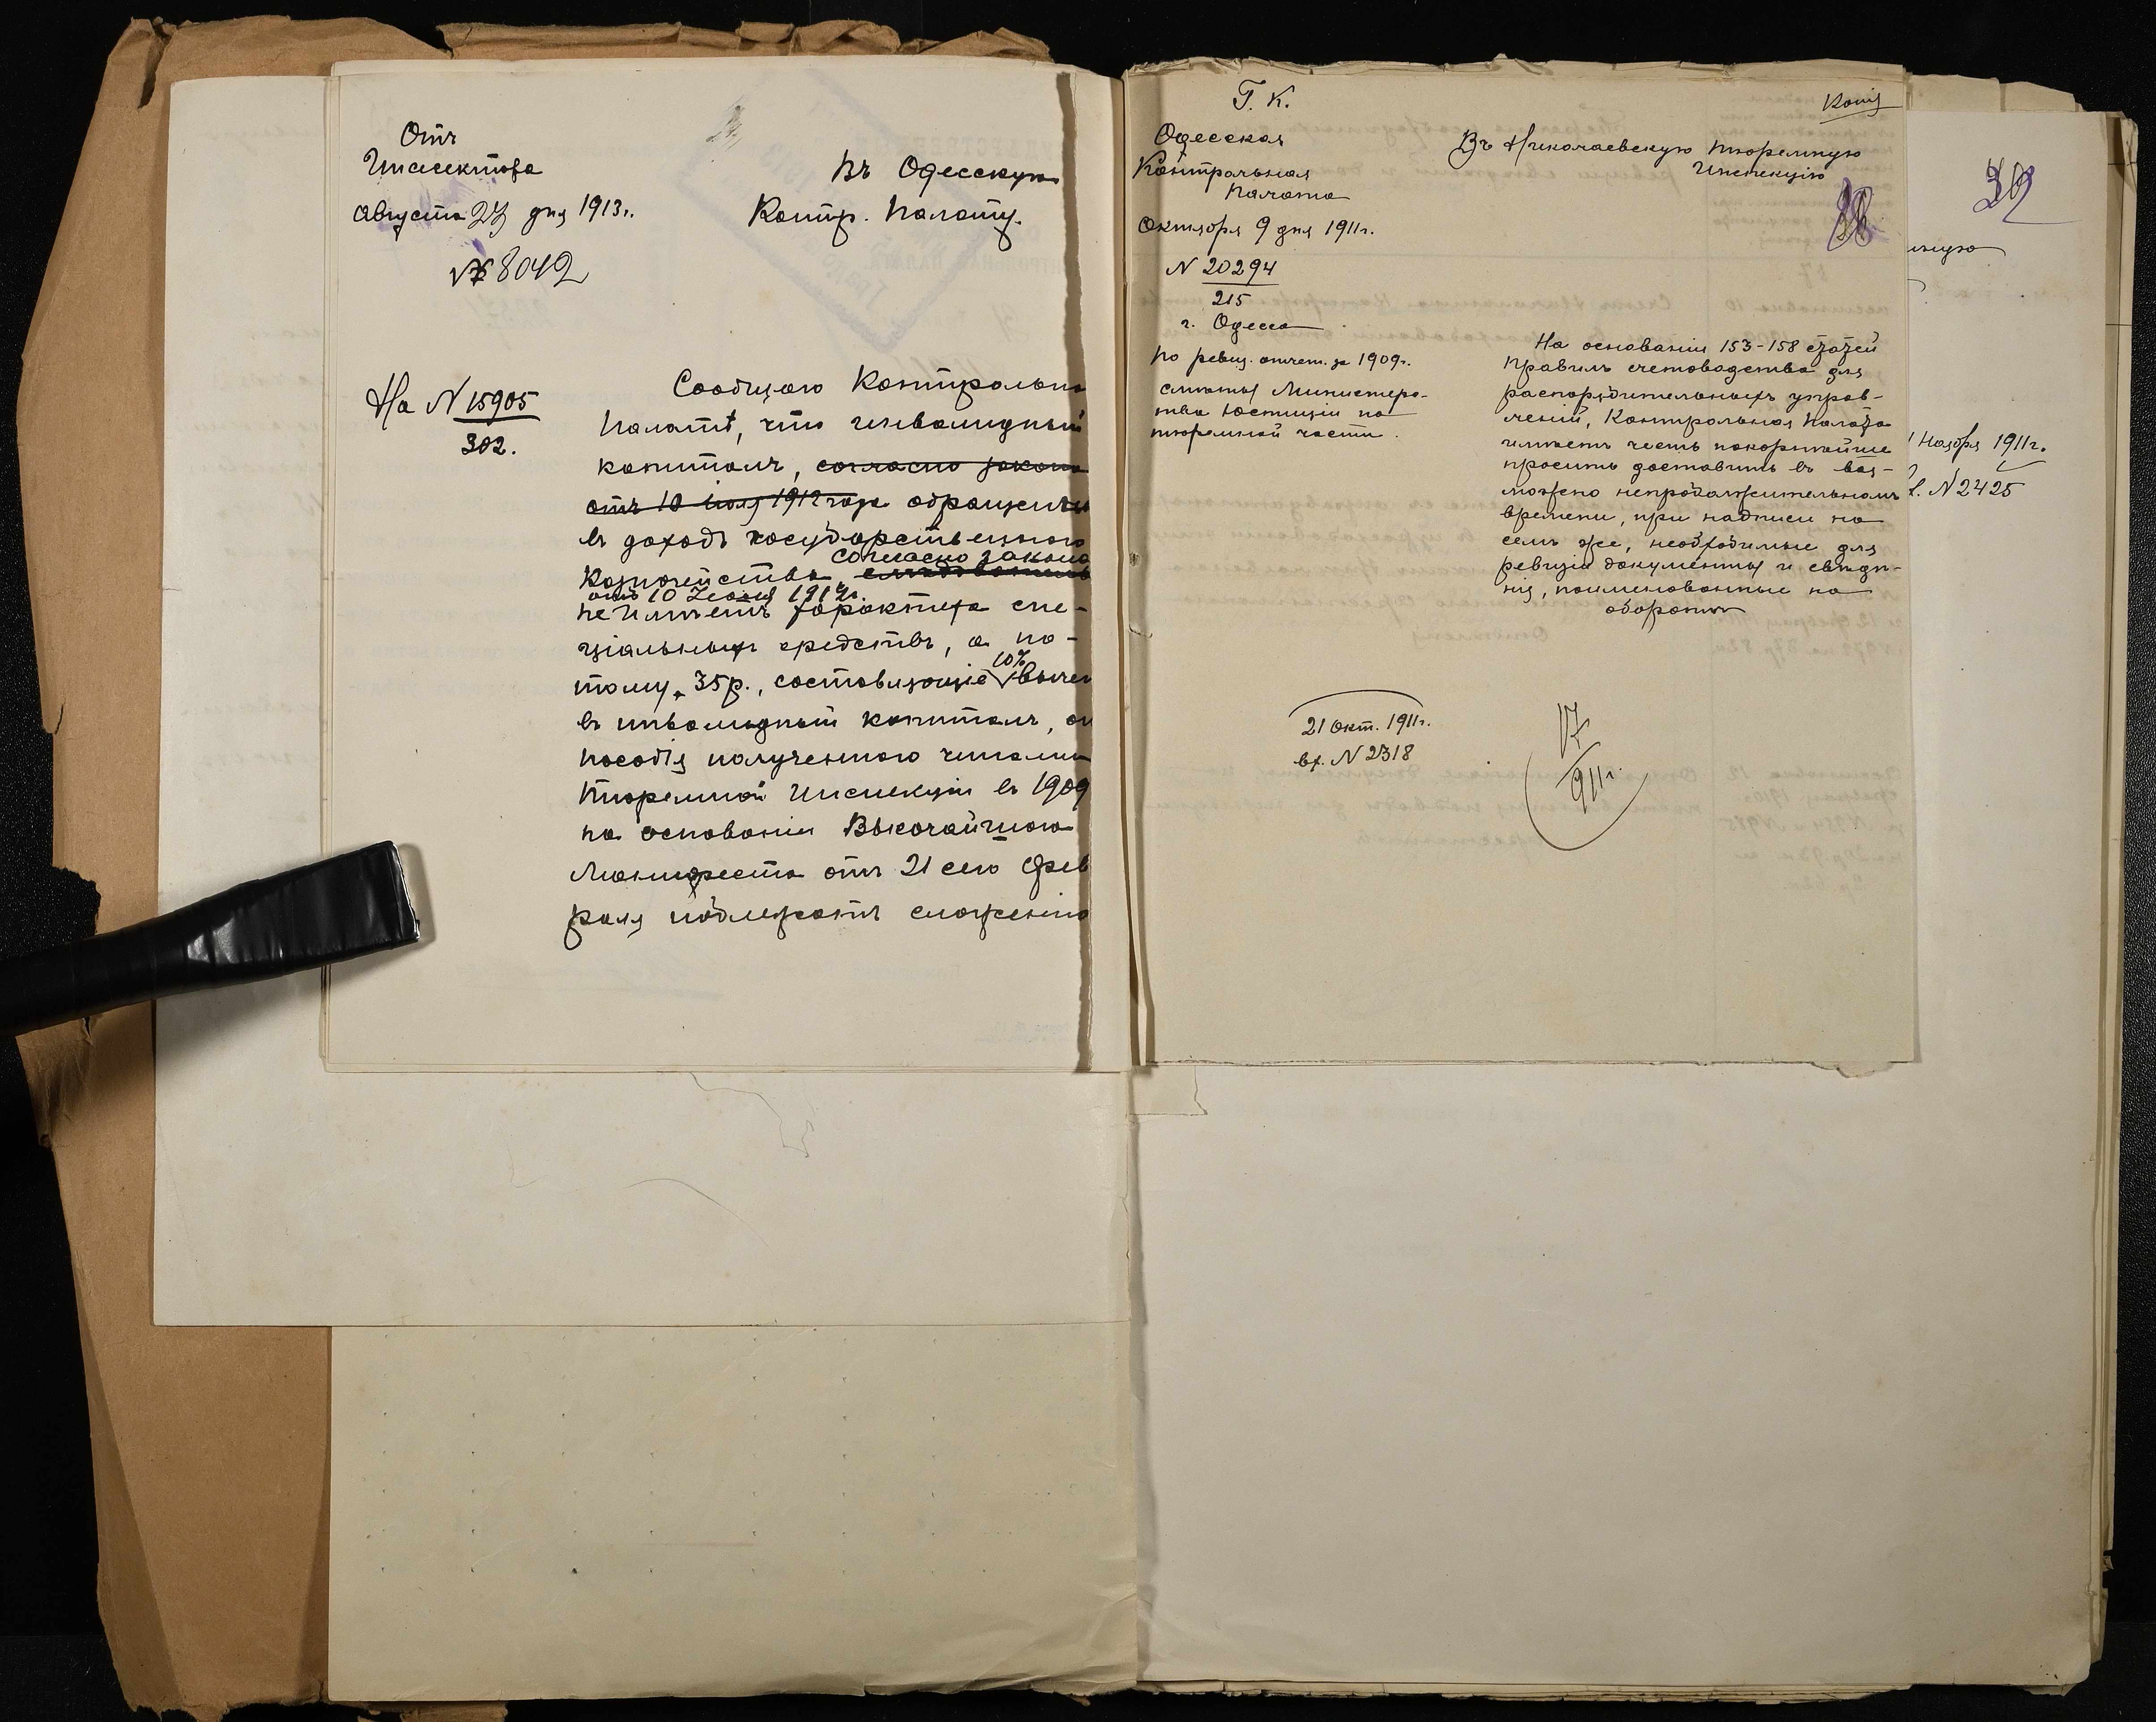 Отъ
Инспектора
Августа 23 дня 1913г.
№ 8042
Въ Одесскую
Контр. Палату.
На N 15905
302.
Сообщаю Контрольно
Палатѣ, что инвалидный
капиталъ, согласно закона
отъ 10 іюля 1912 года обращенъ
въ доходъ государственного
согласно закона
Казначейства,
отъ 10 Іюля 1912г.
не имѣетъ характера спе-
ціальныхъ средствъ, а по-
10%
тому, 35р., составляющіе вычет
въ инвалидный капиталъ, от
пособія полученного чинами
Тюремной Инспекціи въ 1909
на основаніи Высочайшаго
Манифеста отъ 21 сего Фев
раля подлежатъ сложенію
Г. К.
Одесская
Контрольная
Палата
Октября 9 дня 1911г.
N 20294
215
г. Одесса
По ревиз. отчет. за 1909г.
смѣты Министерс-
тва Юстиціи по
тюремной части.
Копія
Въ Николаевскую Тюремную
Инспекцію
На основаніи 153-158 статей
Правилъ счетоводства для
распорядительныхъ управ-
леній, Контрольная Палата
имѣетъ честь покорнѣйше
просить доставить въ воз-
можно непродолжительномъ
времени, при надписи на
семъ же, необходимые для
ревизіи документы и свѣдѣ-
нія, поименованные на
оборотѣ
21 Окт. 1911г.
вх. N 2318
17
911г.
32
1 Ноября 1911г.
N 2425